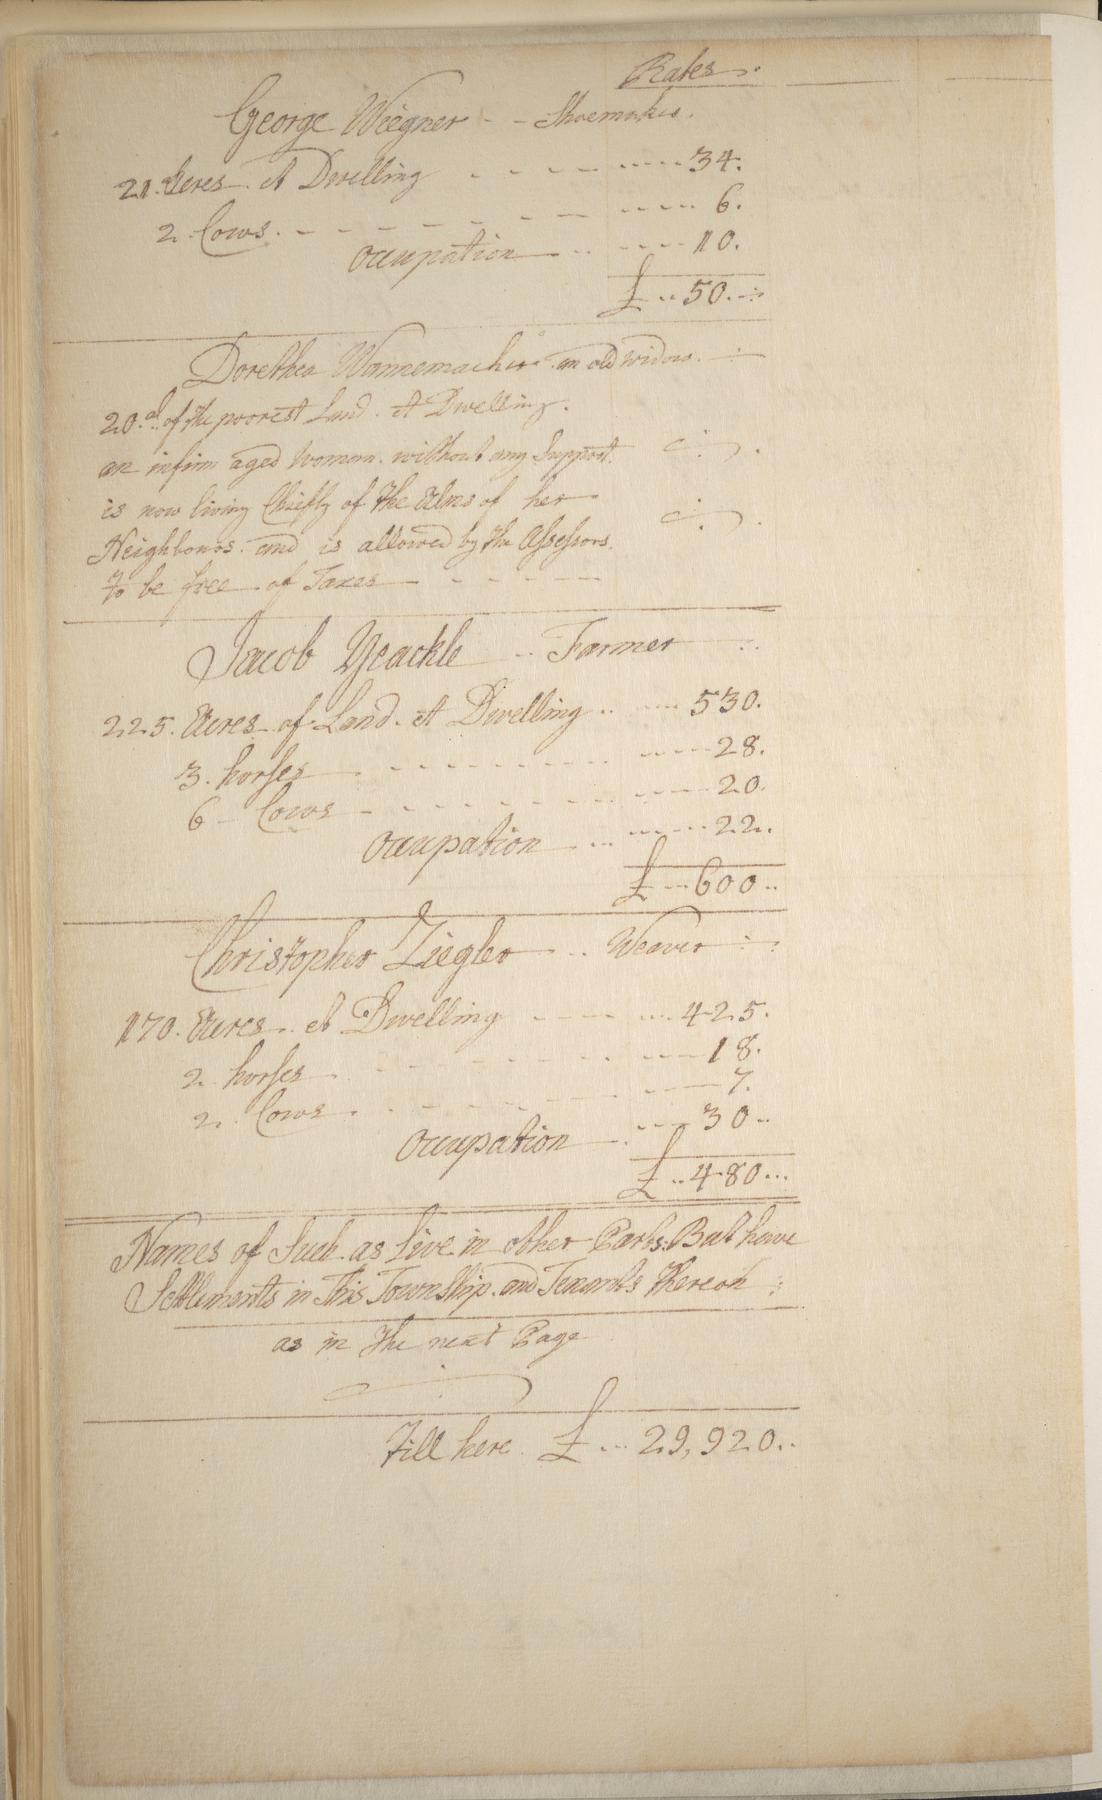 Rates
George Wiegner - - Shoemaker.
21. Acres. A Dwelling - - - - 34.
2. Cows. - - - - - - 6.
Occupation - - 10.
£ .. 50.
Dorethea Wannemacher an old widow.
20. a. of the poorest Land. A Dwelling.
an infirm aged Woman. without any Support.
is now living Chiefly of the Alms of her
Neighbours. and is allowed by the Assessors.
to be free of Taxes - - - -
Jacob Yeackle .. Farmer
225. Acres of Land. A Dwelling .. 530.
3. horses - - - - - - 28.
6 - Cows - - - - - - 20.
Occupation ... 22.
£ .. 600 ..
Christopher Ziegler .. Weaver
170. Acres. A Dwelling - - - - 425.
2. horses - - - - - 18.
2. Cows. - - - - - 7.
Occupation - - 30 ..
£ .. 480 ...
Names of Such as Live in other Parts. But have
Settlements in This Township. and Tenants thereon
as in the next Page
Till here. £ ... 29,920 ..